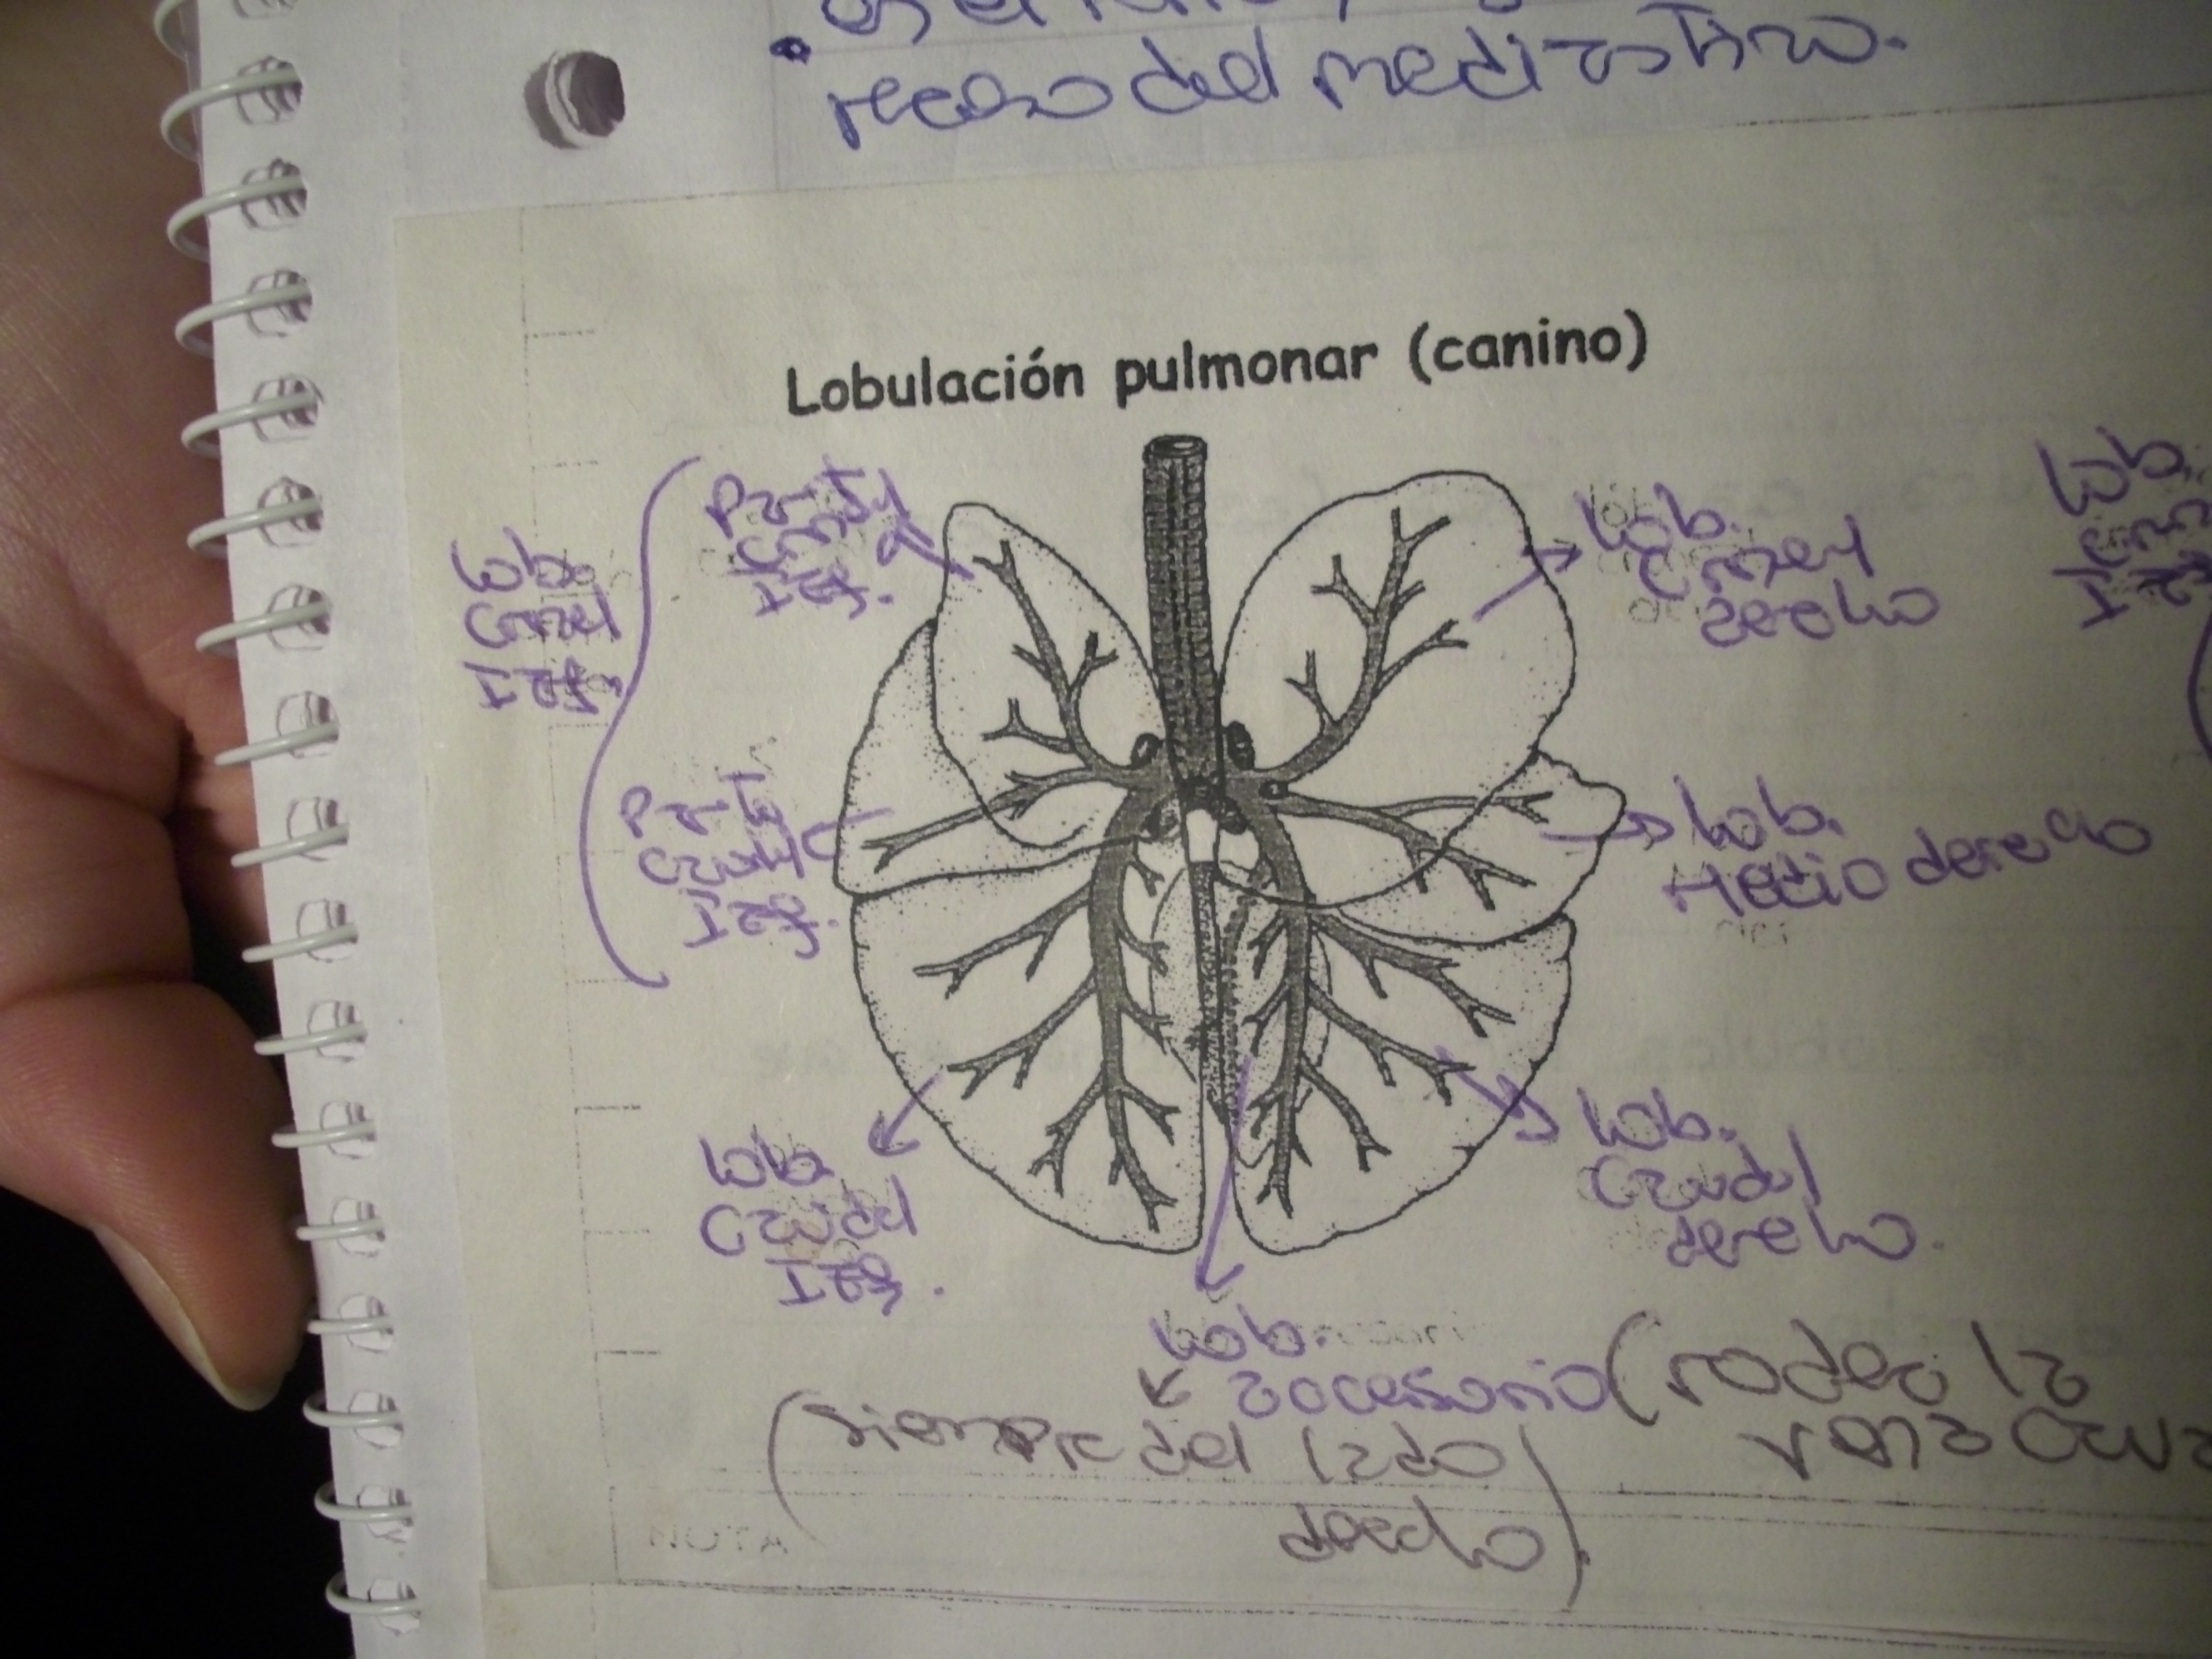 receso del mediastino.
Lobulación pulmonar (canino)
Lob.
Craneal
Izq.
Parte
Craneal
Izq.
Lob.
Craneal
derecho
Lob.
Izq.
Parte
Caudal
Izq.
Lob.
Medio derecho
Lob.
Caudal
Izq.
Lob.
Caudal
derecho
Lob.
accesorio (rodea la
vena cava
(siempre del lado
derecho)